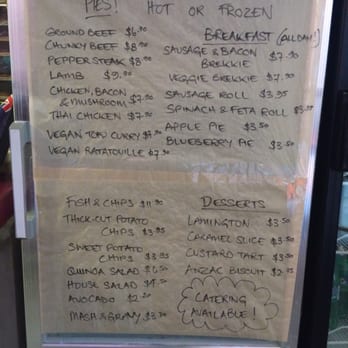 PIES! HOT OR FROZEN
GROUND BEEF $6.90
CHUNKY BEEF $8.90
PEPPER STEAK $8.90
LAMB $9.90
CHICKEN, BACON
& MUSHROOM $7.90
THAI CHICKEN $7.90
VEGAN TOFU CURRY $7.90
VEGAN RATATOUILLE $7.90
BREAKFAST (ALL DAY!)
SAUSAGE & BACON
BREKKIE $7.90
VEGGIE BREKKIE $7.90
SAUSAGE ROLL $3.95
SPINACH & FETA ROLL
APPLE PIE $3.50
BLUEBERRY PIE $3.50
FISH & CHIPS $11.90
THICK-CUT POTATO
CHIPS $3.95
SWEET POTATO
CHIPS
QUINOA SALAD
HOUSE SALAD
AVOCADO
MASH & GRAVY
DESSERTS
LAMINGTON $3.50
CARAMEL SLICE $3.50
CUSTARD TART $3.50
ANZAC BISCUIT
CATERING
AVAILABLE!